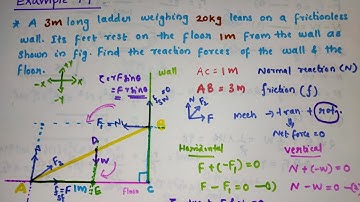 Example 7.9
* A 3m long ladder weighing 20kg leans on a frictionless
wall. Its feet rest on the floor 1m from the wall as
shown in fig. Find the reaction forces of the wall & the
floor.
+y
-x
+x
-y
wall
AC = 1M
AB = 3M
Normal reaction (N)
friction (f)
N
F2
F
mech → tran. + rot.
Net force = 0
F1 = N
B
D
W
F2
A
E
1m
floor
C
Horizontal
F + (-F1) = 0
F - F1 = 0
Vertical
N + (-W) = 0
N - W = 0